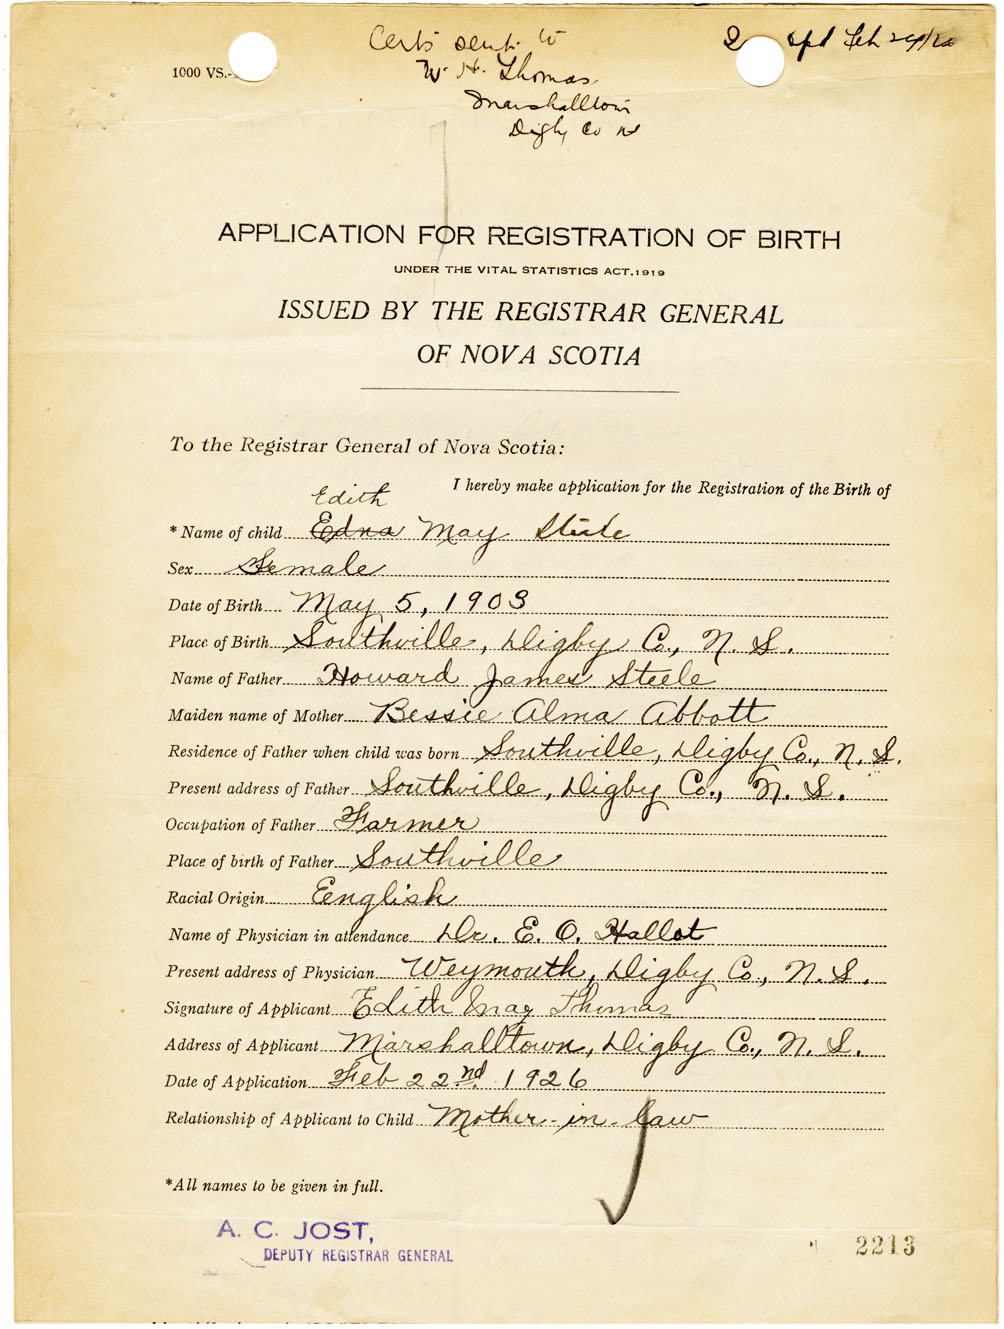 1000 VS.-
Certs sent to
W. H. Thomas
Marshalltown
Digby Co N
Feb 24/26
APPLICATION FOR REGISTRATION OF BIRTH
UNDER THE VITAL STATISTICS ACT, 1919
ISSUED BY THE REGISTRAR GENERAL
OF NOVA SCOTIA
To the Registrar General of Nova Scotia:
I hereby make application for the Registration of the Birth of
Edith
* Name of child Edna May Steele
Sex Female
Date of Birth May 5, 1903
Place of Birth Southville, Digby Co., N. S.
Name of Father Howard James Steele
Maiden name of Mother Bessie Alma Abbott
Residence of Father when child was born Southville, Digby Co., N. S.
Present address of Father Southville, Digby Co., N. S.
Occupation of Father Farmer
Place of birth of Father Southville
Racial Origin Eenglish
Name of Physician in attendance Dr. E. O. Hallot
Present address of Physician Weymouth, Digby Co., N. S.
Signature of Applicant Edith May Thomas
Address of Applicant Marshalltown, Digby Co., N. S.
Date of Application Feb 22nd. 1926
Relationship of Applicant to Child Mother-in-law
*All names to be given in full.
A. C. JOST,
DEPUTY REGISTRAR GENERAL
2213